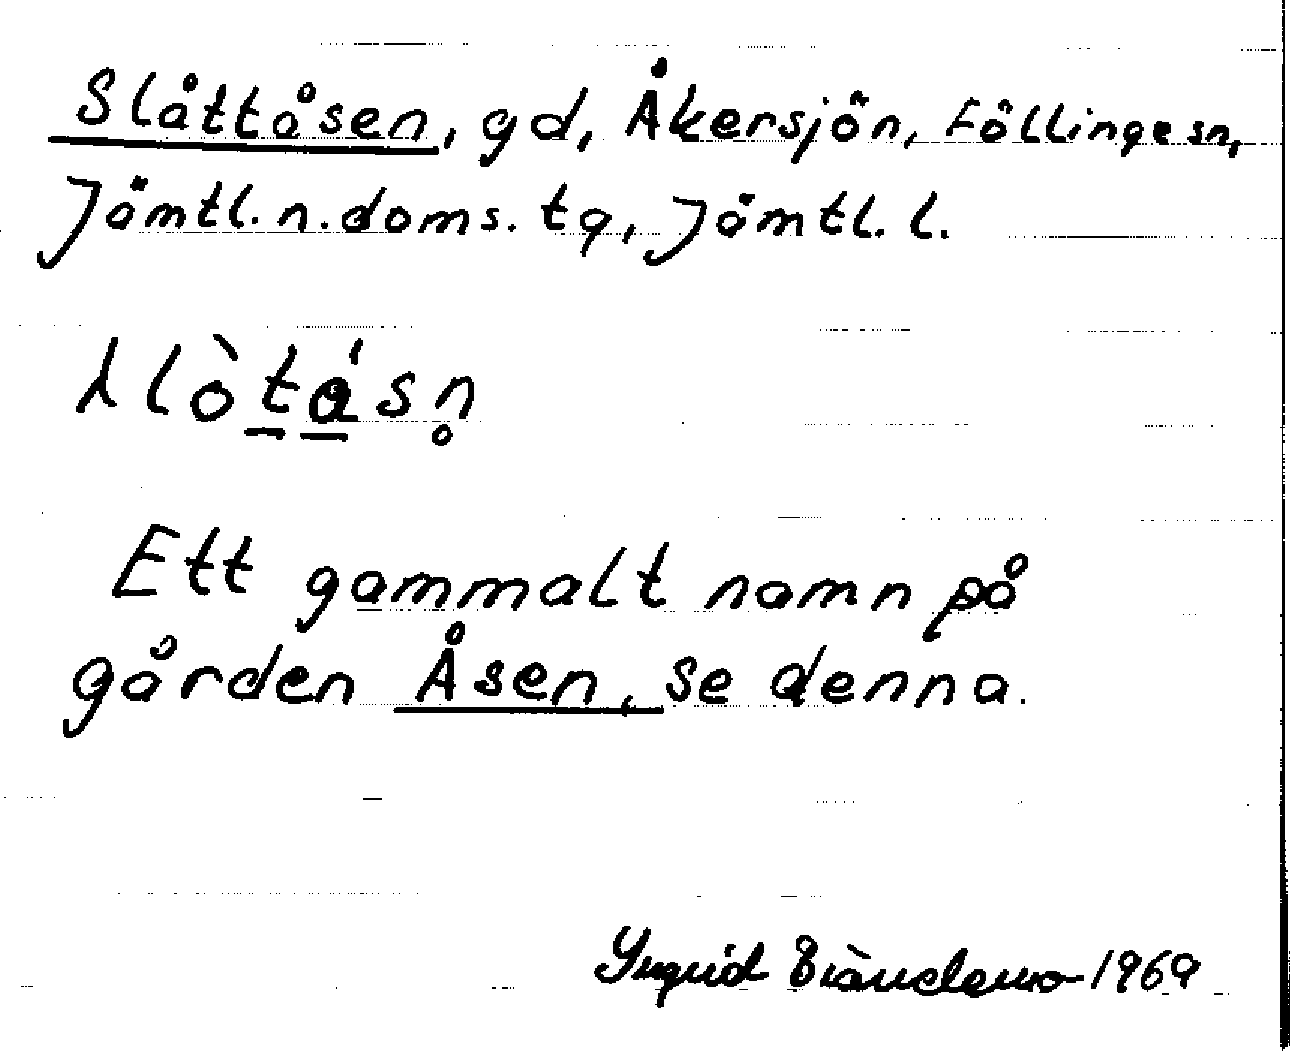 Slåttåsen, gd, Åkersjön, Föllinge sn,
Jämtl. n. doms. tg, Jämtl. l.
Ett gammalt namn på
gården Åsen, se denna.
Ingrid 1969